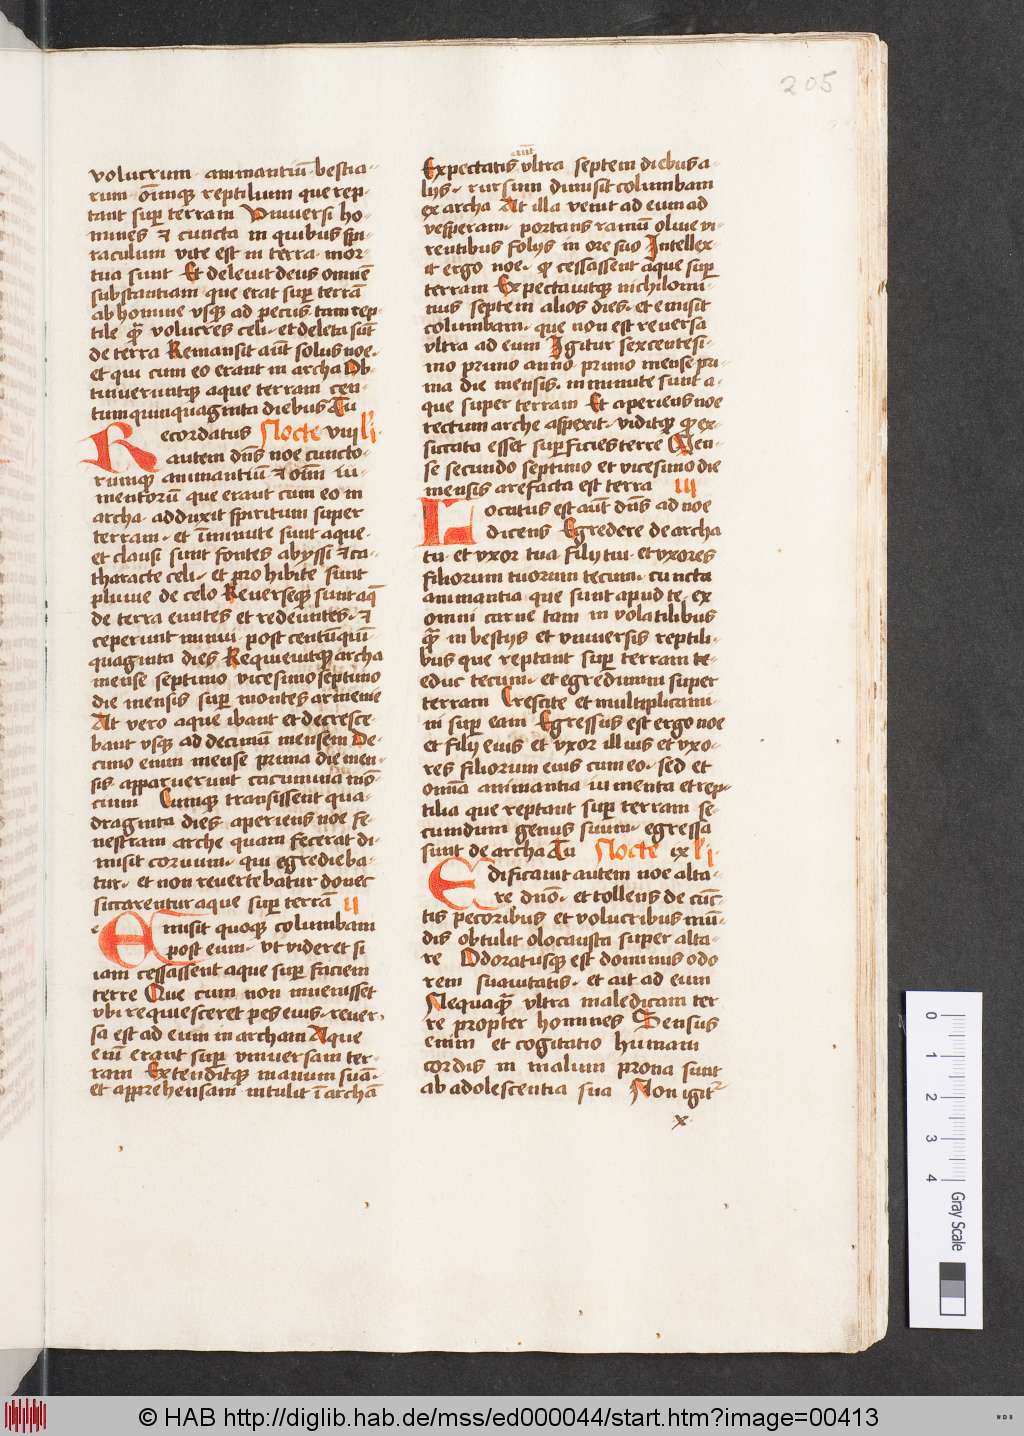 205
volucrum · animantiū · bestia-
rum · oīmq₃ reptilium que rep-
tant sup̲ terram Vniuersi ho-
mines ⁊ cuncta in quibus spi-
raculum vite est in terra · mor-
tua sunt Et deleuit deus omnē
substantiam que erat sup̲ terrā
ab homine vsq₃ ad pecus tam rep-
tile qꝫ̄ volucres celi · et deleta sūt
de terra Remansit aūt solus noe ·
et qui cum eo erant in archa Ob-
tinueruntq₃ aque terram cen-
tum quinquaginta diebus Tu
Recordatus Nocte viii lī ·
autem dn̄s noe cuncto-
rumq₃ animantiū ⁊ oīm iu-
mentorū que erant cum eo in
archa · adduxit spiritum super
terram · et īminute sunt aque ·
et clausi sunt fontes abyssi ⁊ ca-
tharacte celi · et prohibite sunt
pluuie de celo Reuerseq₃ sunt aq̄
de terra euntes et redeuntes · ⁊
ceperunt minui · post centūquī-
quaginta dies Requieuitq₃ archa
mense septimo vicesimo septimo
die mensis sup̲ montes armenie
At vero aque ibant et decresce-
bant vsq₃ ad decimū mensem De-
cimo enim mense prima die men-
sis apparuerunt cacumina mō-
cium Cumq₃ transissent qua-
draginta dies aperiens noe fe-
nestram arche quam fecerat di-
misit coruum · qui egredieba-
tur · et non reuertebatur donec
siccarentur aque sup̲ terrā ii
Emisit quoq₃ columbam
post eum · vt videret si
iam cessassent aque sup̲ faciem
terre Que cum non inuenisset
vbi requiesceret pes eius · reuer-
sa est ad eum in archam Aque
enī erant sup̲ vniuersam ter-
ram Extenditq₃ manum suā ·
et apprehensam intulit ī archā
aūt
Expectatis vltra septem diebus a-
liis · rursum dimisit columbam
ex archa At illa venit ad eum ad
vesperam · portans ramū oliue vi-
rentibus folijs in ore suo Intellex-
it ergo noe · ꝙ cessassent aque sup̲
terram Expectauitq₃ nichilomi-
nus septem alios dies · et emisit
columbam · que non est reuersa
vltra ad eum Igitur sexcentesi-
mo primo anno primo mense pri-
ma die mensis · inminute sunt a-
que super terram Et aperiens noe
tectum arche aspexit · viditq₃ ꝙ ex-
siccata esset superficies terre Men-
se secundo septimo et vicesimo die
mensis arefacta est terra iii
Locutus est aūt dn̄s ad noe
dicens Egredere de archa
tu · et vxor tua filij tui · et vxores
filiorum tuorum tecum · cuncta
animantia que sunt apud te · ex
omni carne tam in volatilibus
qꝫ̄ in bestijs et vniuersis reptili-
bus que reptant sup̲ terram te-
educ tecum · et egredimini super
terram Crescite et multiplicami-
ni sup̲ eam Egressus est ergo noe
et filij eius et vxor illius et vxo-
res filiorum eius cum eo · sed et
omīa animantia iumenta et rep-
tilia que reptant sup̲ terram se-
cundum genus suum · egressa
sunt de archa Tu Nocte ix lī ·
Edificauit autem noe alta-
re dn̄o · et tollens de cūc-
tis pecoribus et volucribus mū-
dis obtulit olocausta super alta-
re Odoratusq₃ est dominus odo
rem suauitatis · et ait ad eum
Nequaqꝫ̄ vltra maledicam ter
re propter homines Sensus
enim et cogitatio humani
cordis in malum prona sunt
ab adolescentia sua Non igit᷑
x ·
0 1 2 3 4
Gray Scale
© HAB http://diglib.hab.de/mss/ed000044/start.htm?image=00413